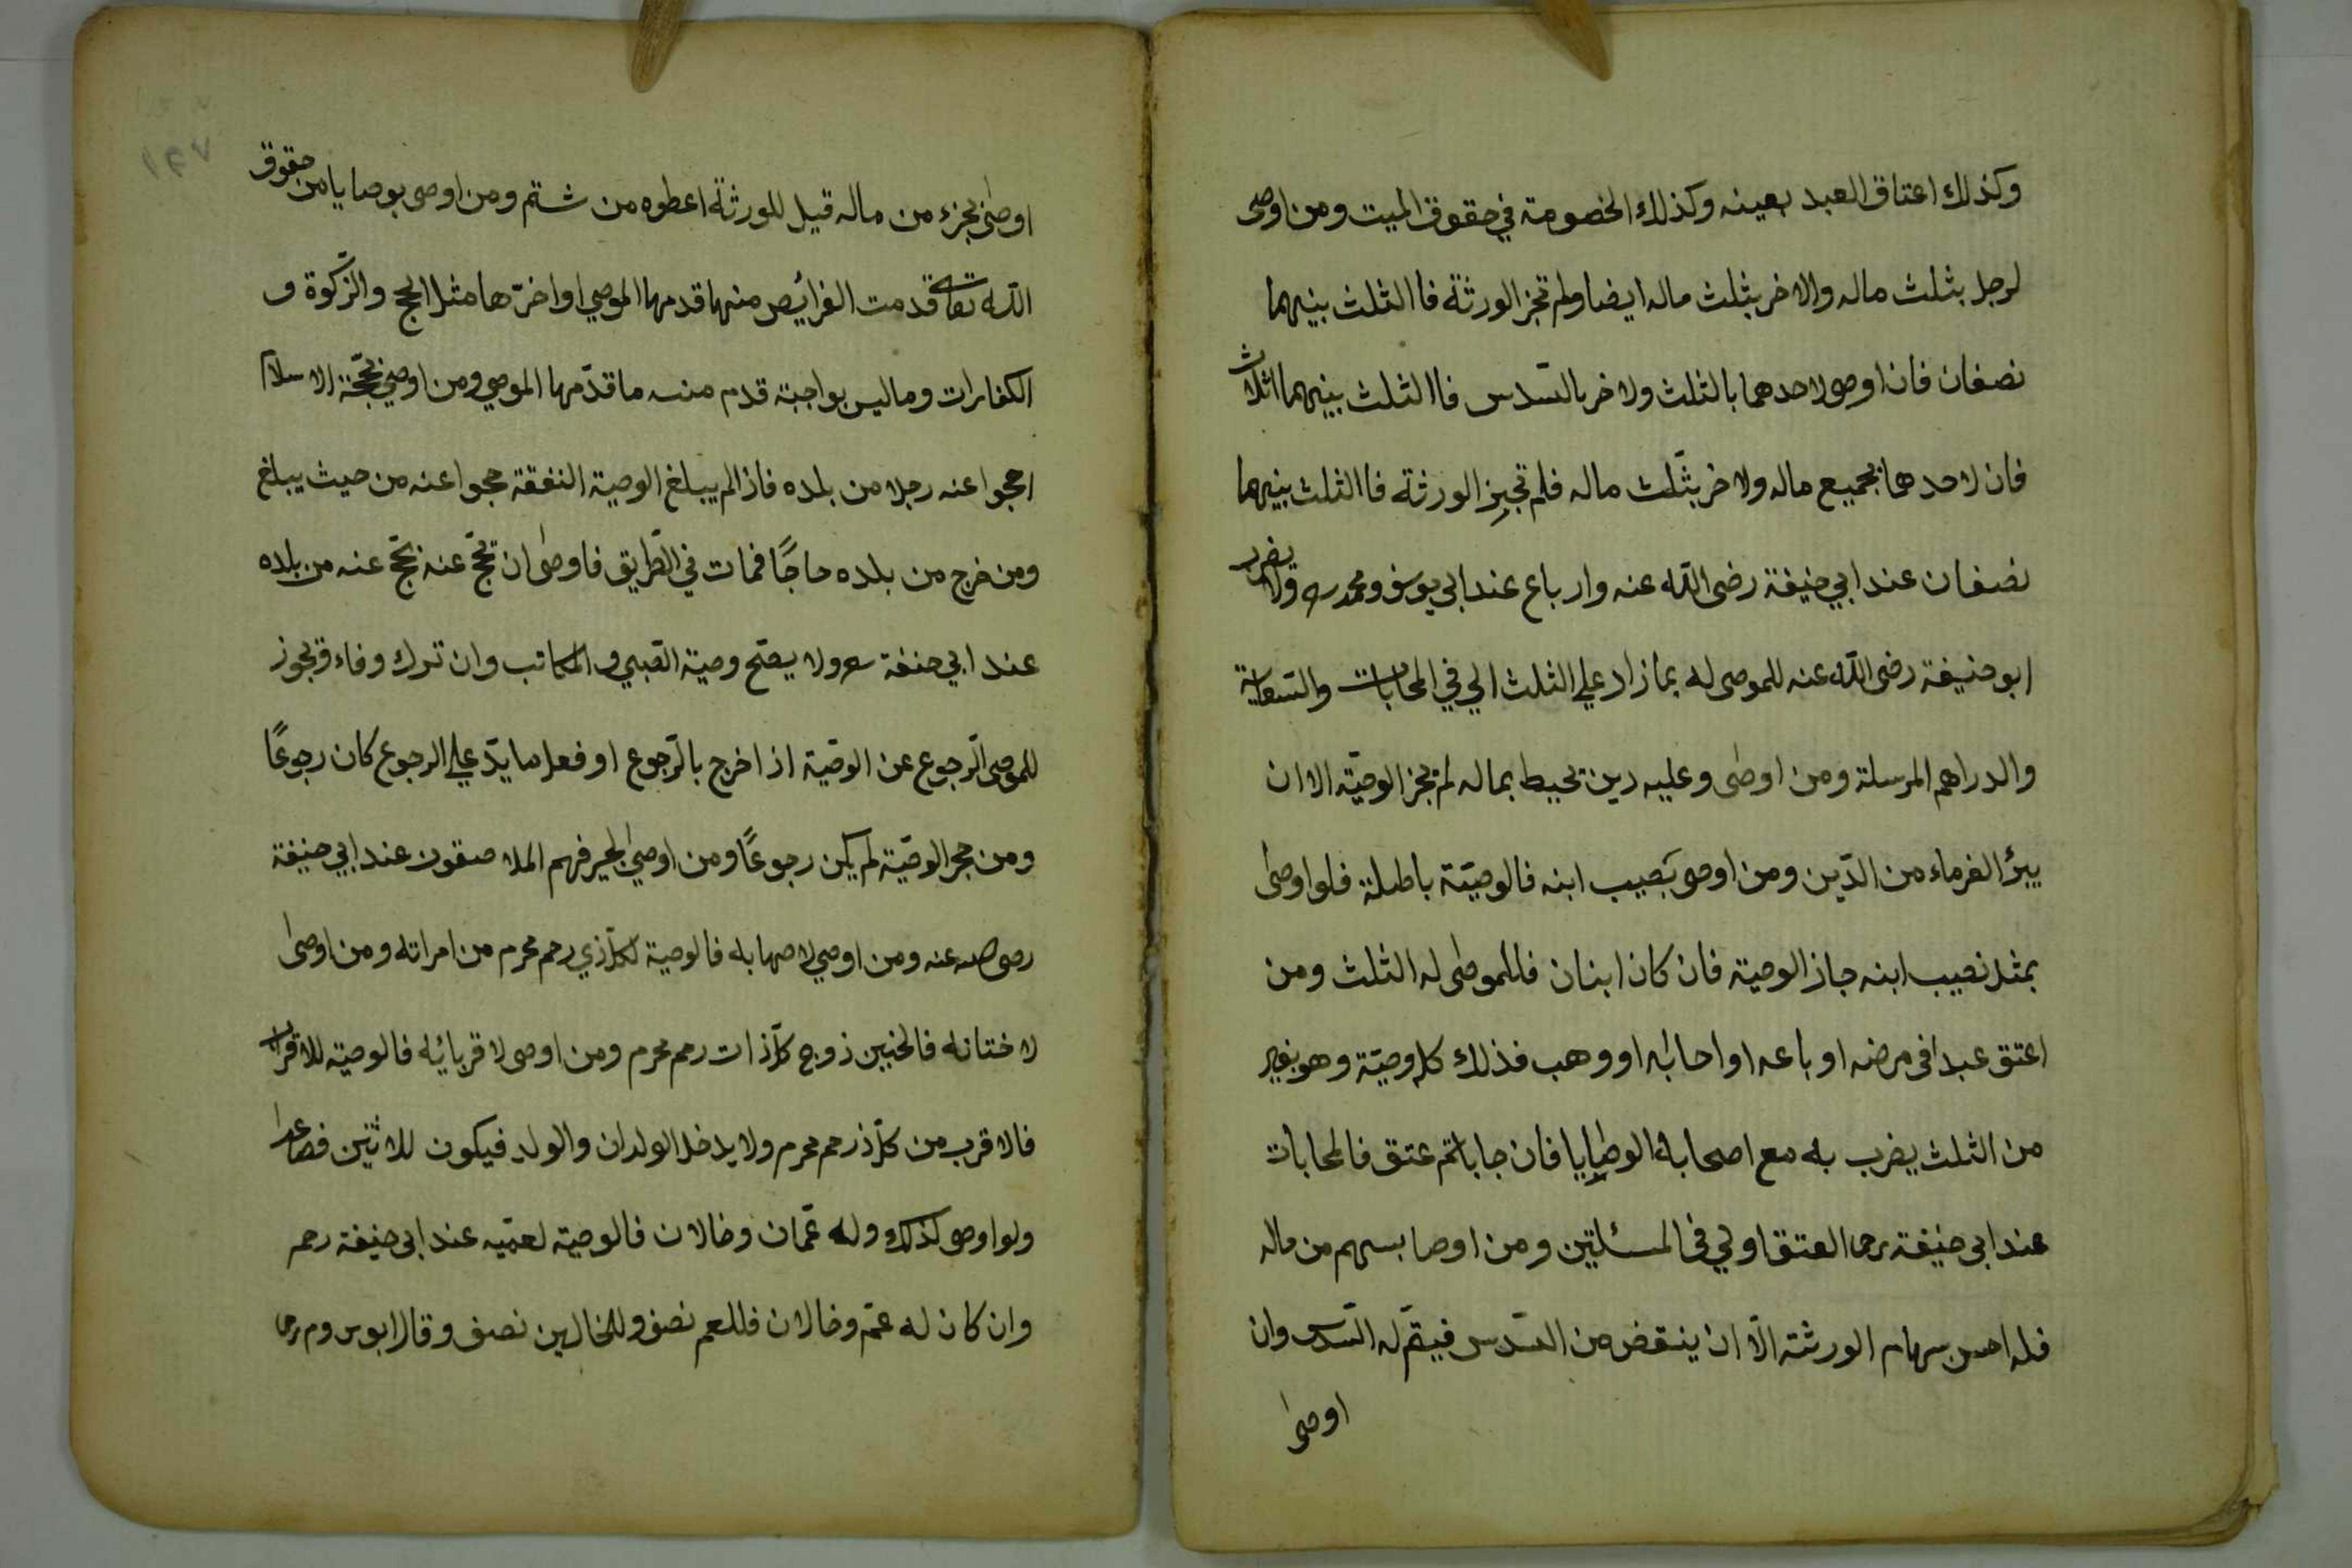 وكذلك اعتاق العبد بعينه وكذلك الخصومة في حقوق الميت ومن اوصى
لرجل بثلث ماله والاخر بثلث ماله ايضا ولم تجز الورثة فاالثلث بينهما
نصفان فان اوصى لاحدهما بالثلث ولاخر بالسّدس فاالثلث بينهما اثلاث
فان لاحدهما بجميع ماله ولاخر بثلث ماله فلم تجيز الورثة فاالثلث بينهما
نصفان عند ابي حنيفة رضى اللّه عنه وارباع عند ابى يوسف ومحمد ره ولا يضرب
ابو حنيفة رضى اللّه عنه للموصى له بمازاد علي الثلث الي في المحابات والسّعاية
والدراهم المرسلة ومن اوصٰى وعليه دين تحيط بماله لم تجز الوصيّة الا ان
يبرؤ الغرماء من الدّين ومن اوصى بنصيب ابنه فالوصيّة باطلة فلو اوصٰى
بمثل نصيب ابنه جاز الوصية فان كان ابنان فللموصٰى له الثلث ومن
اعتق عبدا فى مرضه او باعه او احاباه او وهب فذلك كله وصيّة وهو بغير
من الثلث يضرب به مع اصحابه الوصايا فان حاباثم عتق فالمحابات
عند ابى حنيفة رحما العتق اولي فى المسئلتين ومن اوصا بسهم من ماله
فله احسن سهام الورثة الّا ان ينقض من السّدس فيتمّ له السّدس وان
اوصٰى
اوصٰى بجزء من ماله قيل للورثة اعطوه من شئتم ومن اوصى بوصايا من حقوق
اللّه تعالى قدمت الفرائيض منها قدمها الموصي او اخرّها مثل الحج والزّكوة و
الكفارات وماليس بواجبة قدم منه ما قدّمها الموصي ومن اوصي بحّجة الاسلام
احجوا عنه رجلا من بلده فاذالم يبلغ الوصية النفقة حجوا عنه من حيث يبلغ
ومن خرج من بلده حاجًا فمات في الطّريق فاوصٰى ان تحجّ عنه تحجّ عنه من بلده
عند ابي حنفة ولا يصحّ وصية الصّبي والمكاتب وان ترك وفاء ويجوز
للموصى الرّجوع عن الوصّية اذ اخرج بالرّجوع او فعل مايدّ علي الرجوع كان رجوعًا
ومن حجر الوصّية لم يكن رجوعًا ومن اوصٰي لجير فهم الملاصقون عند ابي حنيفة
رضى عنه ومن اوصي لاصهابه فالوصية لكلّ ذي رحم محرم من امراته ومن اوصٰى
لاختانه فالختين زوج كلّ ذات رحم محرم ومن اوصى لاقربائيه فالوصيّة للاقرب
فالاقرب من كلّ ذرحم محرم ولا يدخل الولدان والولد فيكون للاثنين فصاعدا
ولو اوصى كذلك وله عمّان وخالان فالوصية لعمّيه عند ابى حنيفة رحمه
وان كان له عمّ وخالان فللعم نصف وللخالين نصف وقال ابوس وم رحما